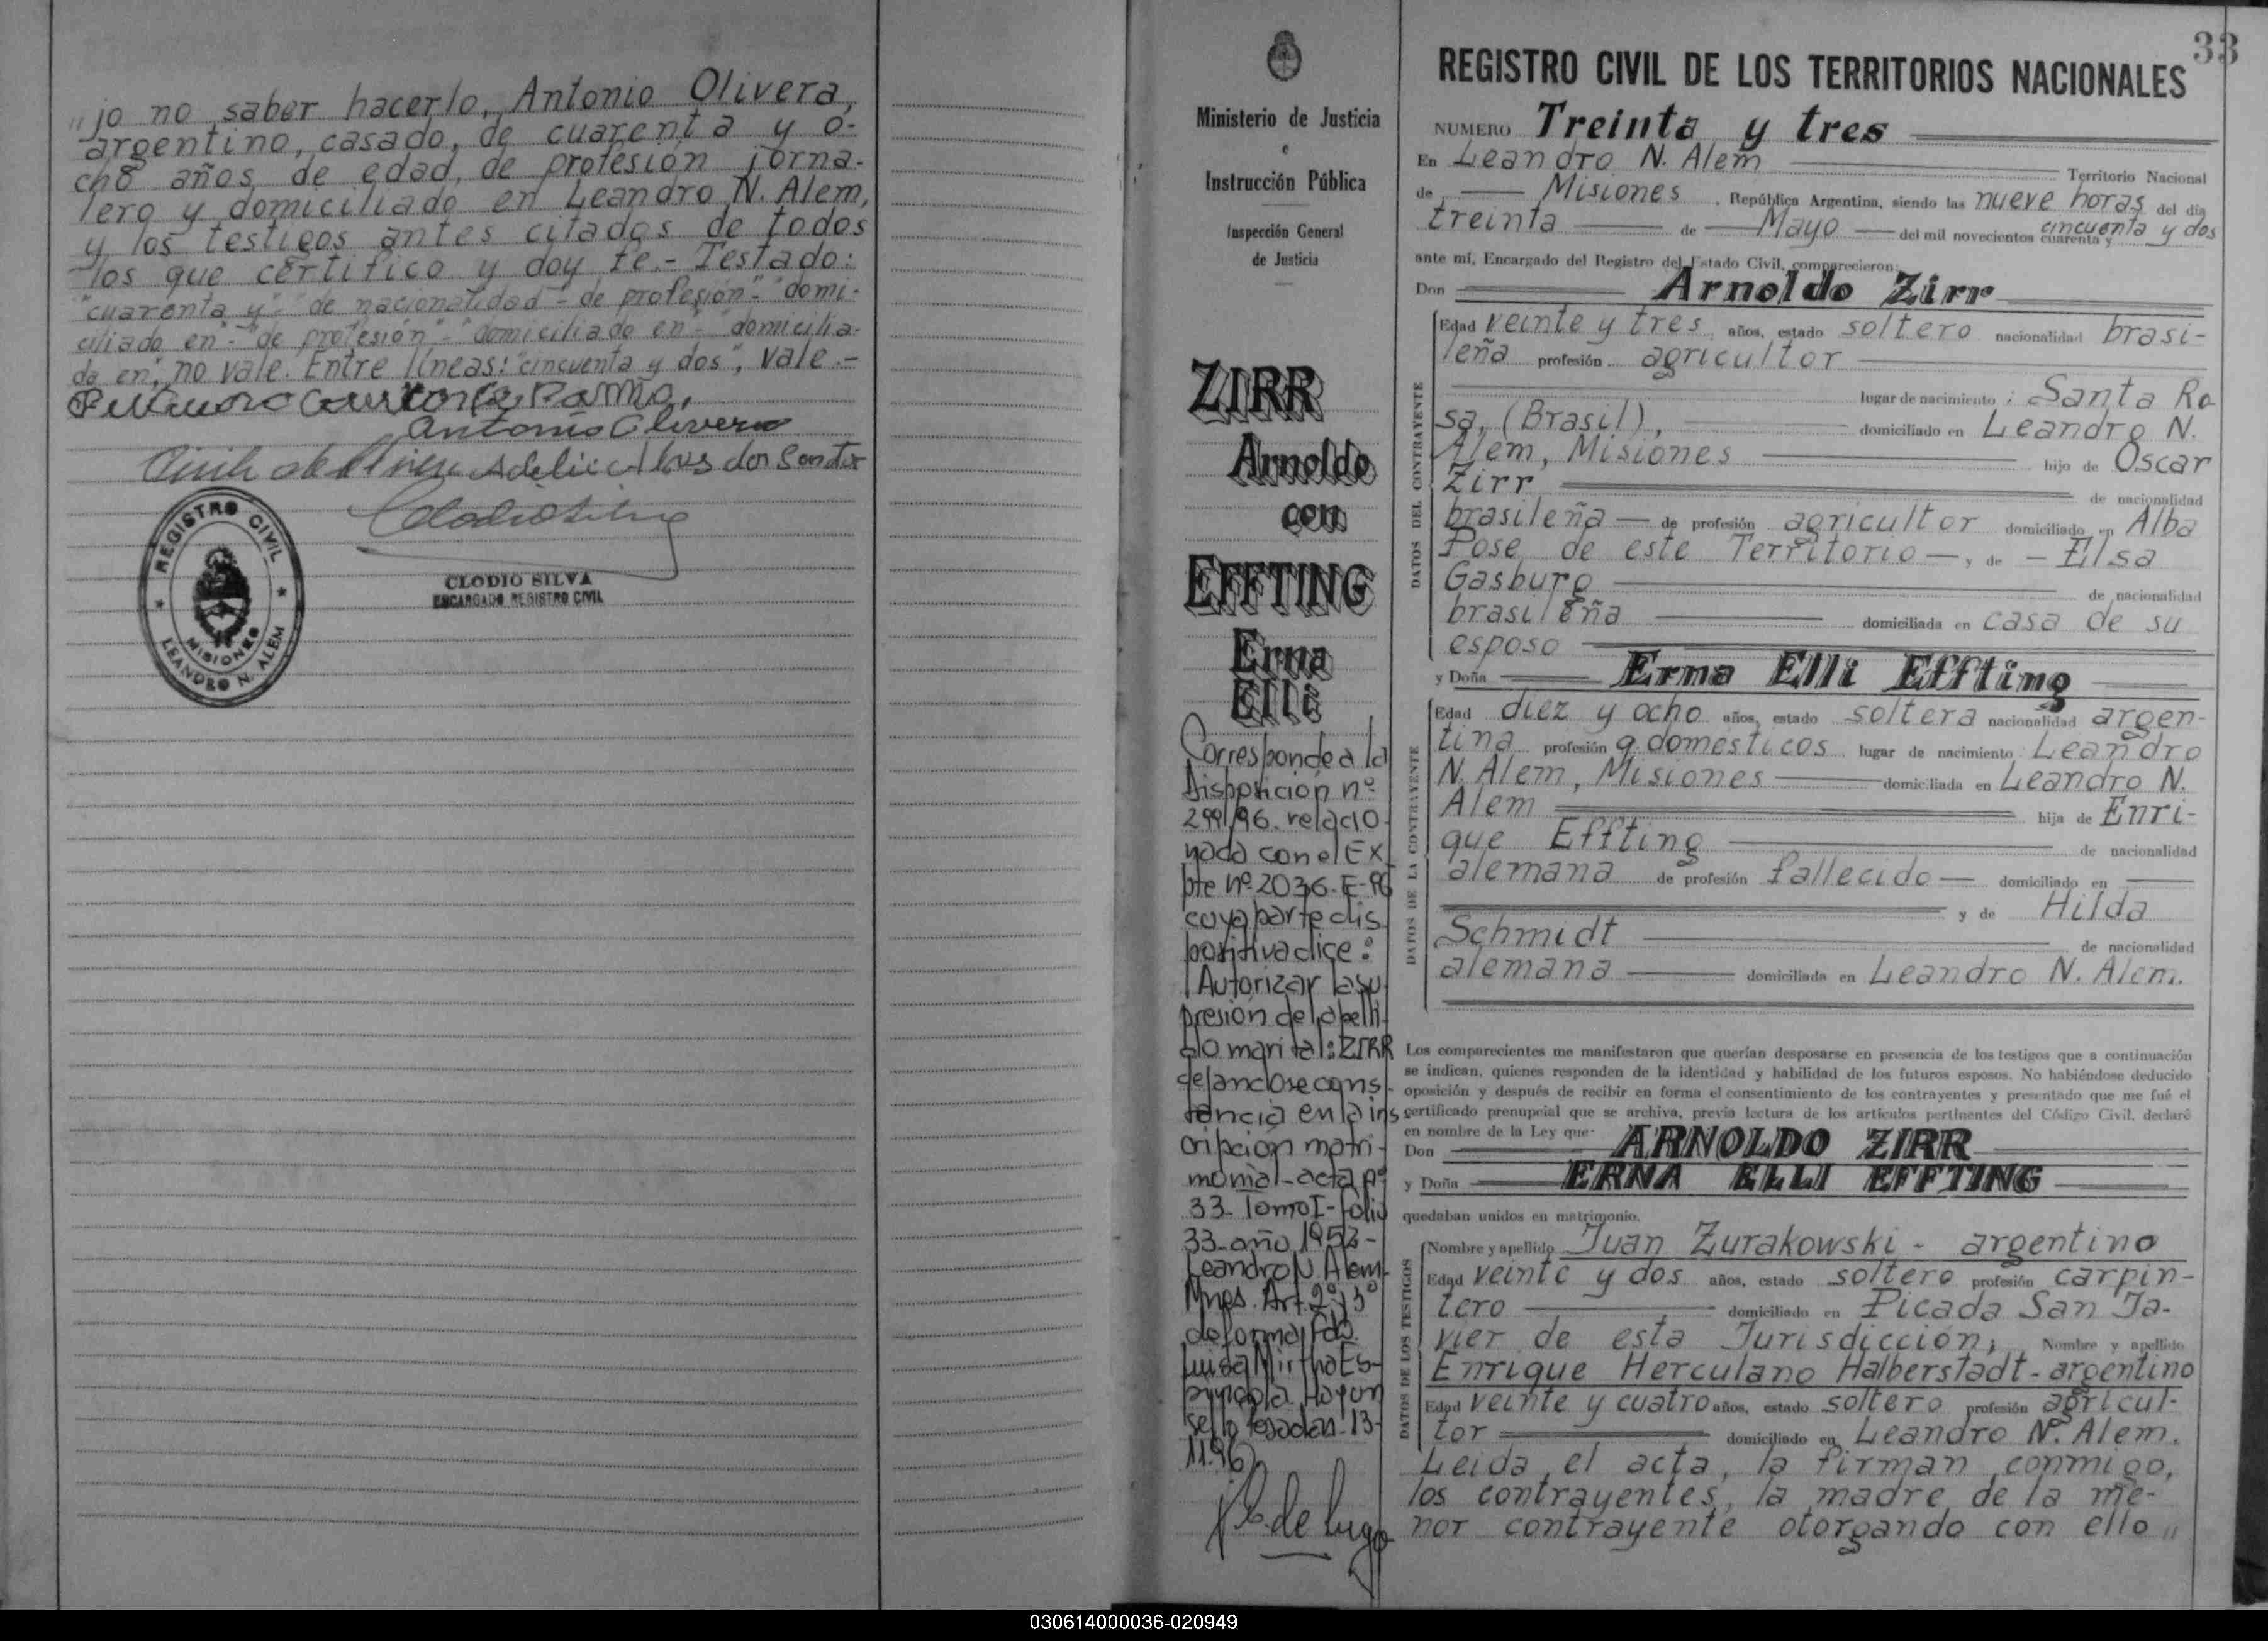 "jo no saber hacerlo, Antonio Olivera,
argentino, casado, de cuarenta y o-
cho años de edad, de profesión jorna-
lero y domiciliado en Leandro N. Alem,
y los testigos antes citados de todos
los que certifico y doy fe.- Testado:
"cuarenta y"- "de nacionalidad - de profesión"- "domi-
ciliado en"- "de profesión"- "domiciliado en"- "domicilia-
da en", no vale. Entre líneas: "cincuenta y dos", vale.-
Antonio Olivera
REGISTRO CIVIL
MISIONES
LEANDRO N. ALEM
CLODIO SILVA
ENCARGADO REGISTRO CIVIL
Ministerio de Justicia
e
Instrucción Pública
Inspección General
de Justicia
ZIRR
Arnoldo
con
EFFTING
Erna
Elli
Corresponde a la
Disposición nº
299/96. relacio-
nada con el Ex
pte nº 2036-E-96
cuya parte dis
positiva dice:
Autorizar la su
presión del apelli-
do marital: ZIRR
dejandose cons-
tancia en la ins
cripcion matri-
monial-acta nº
33- Tomo I- folio
33- año 1952-
Leandro N. Alem-
Mnes. Art. 2º y 3º
de forma. Fdo.
Luisa Mirtha Es-
pindola. Hay un
sello. Posadas. 13-
11.96
33
REGISTRO CIVIL DE LOS TERRITORIOS NACIONALES
NUMERO Treinta y tres
En Leandro N. Alem Territorio Nacional
de Misiones, República Argentina, siendo las nueve horas del día
treinta de Mayo del mil novecientos cuarenta y cincuenta y dos
ante mí, Encargado del Registro del Estado Civil, comparecieron:
Don Arnoldo Zirr
DATOS DEL CONTRAYENTE
Edad veinte y tres años, estado soltero nacionalidad brasi-
leña profesión agricultor
lugar de nacimiento: Santa Ro
sa, (Brasil), domiciliado en Leandro N.
Alem, Misiones hijo de Oscar
Zirr de nacionalidad
brasileña de profesión agricultor domiciliado en Alba
Pose de este Territorio y de Elsa
Gasburg de nacionalidad
brasileña domiciliada en casa de su
esposo
y Doña Erna Elli Effting
DATOS DE LA CONTRAYENTE
Edad diez y ocho años, estado soltera nacionalidad argen-
tina profesión q. domésticos lugar de nacimiento Leandro
N. Alem, Misiones domiciliada en Leandro N.
Alem hija de Enri-
que Effting de nacionalidad
alemana de profesión fallecido domiciliado en
y de Hilda
Schmidt de nacionalidad
alemana domiciliada en Leandro N. Alem.
Los comparecientes me manifestaron que querían desposarse en presencia de los testigos que a continuación
se indican, quienes responden de la identidad y habilidad de los futuros esposos. No habiéndose deducido
oposición y después de recibir en forma el consentimiento de los contrayentes y presentado que me fué el
certificado prenupcial que se archiva, previa lectura de los artículos pertinentes del Código Civil, declaré
en nombre de la Ley que:
Don ARNOLDO ZIRR
y Doña ERNA ELLI EFFTING
quedaban unidos en matrimonio.
DATOS DE LOS TESTIGOS
Nombre y apellido Juan Zurakowski - argentino
Edad veinte y dos años, estado soltero profesión carpin-
tero domiciliado en Picada San Ja-
vier de esta Jurisdicción, Nombre y apellido
Enrique Herculano Halberstadt - argentino
Edad veinte y cuatro años, estado soltero profesión agricul-
tor domiciliado en Leandro N. Alem.
Leida el acta, la firman conmigo,
los contrayentes, la madre de la me-
nor contrayente otorgando con ello "
030614000036-020949